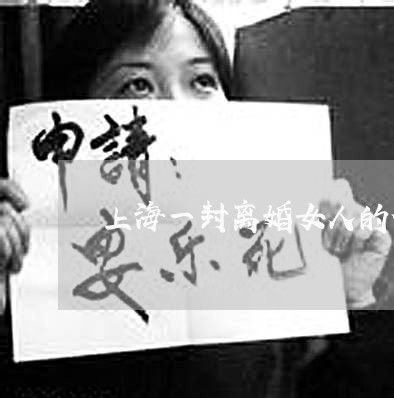 申請：
上海一封离婚女人的
安乐死